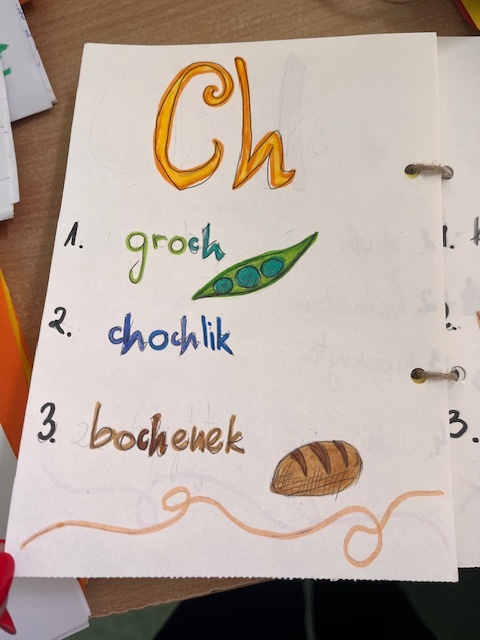 Ch
1. groch
2. chochlik
3. bochenek
1.
2.
3.